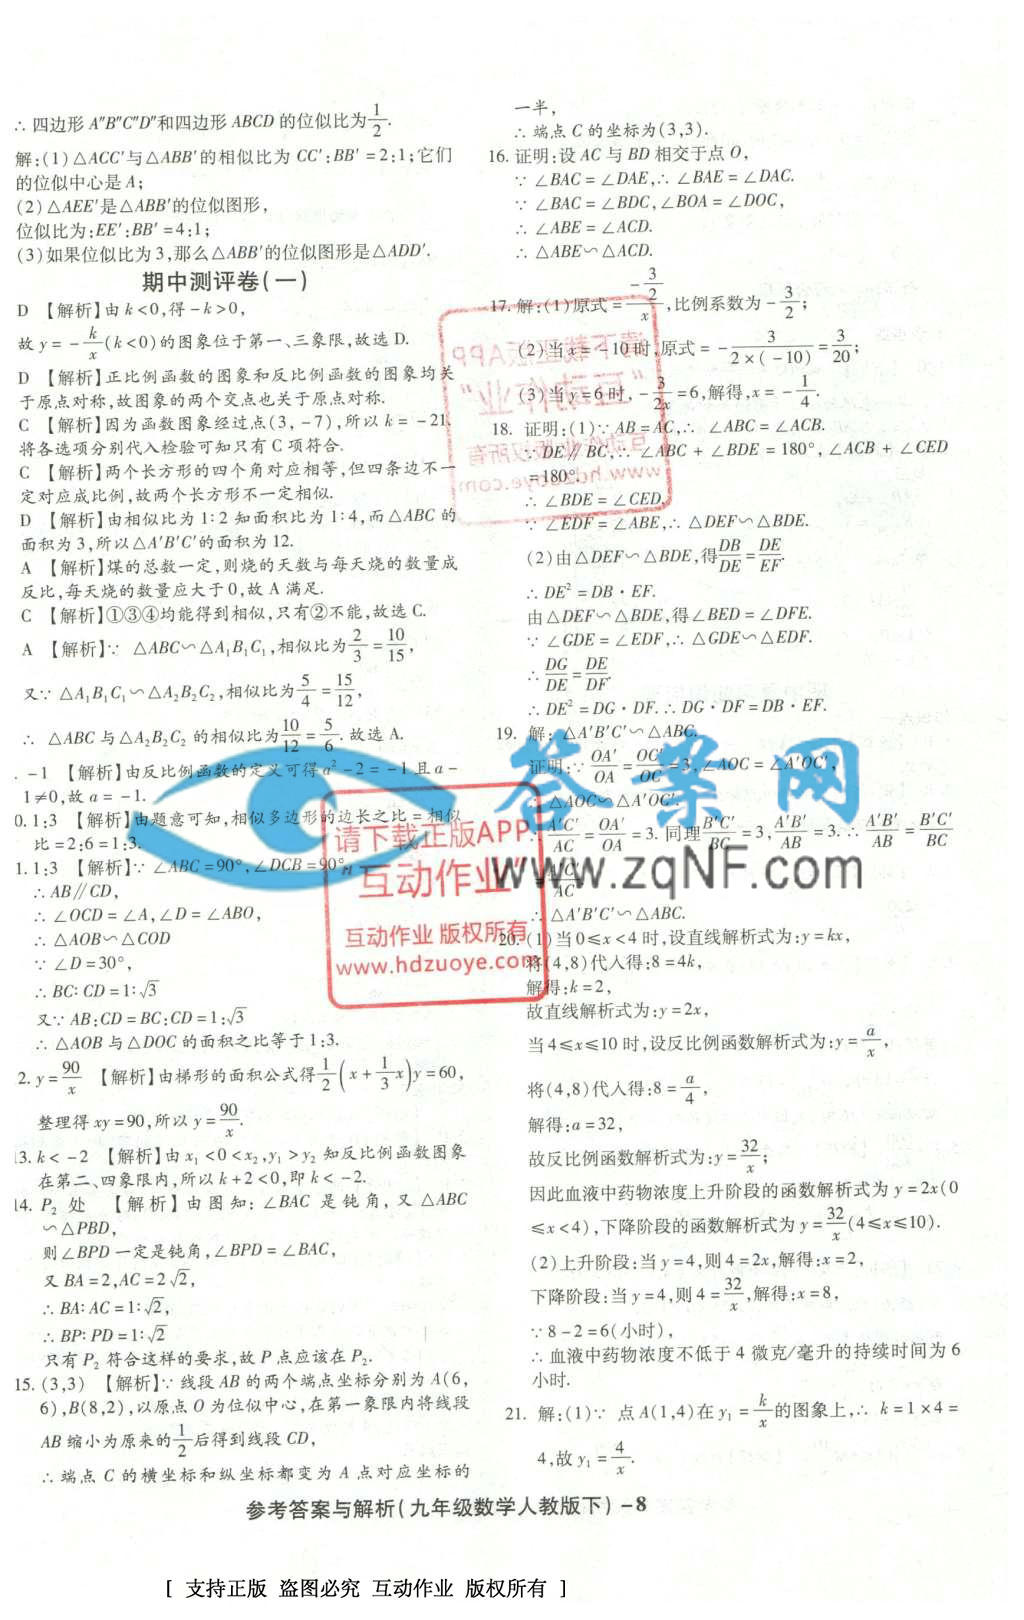 ∴四边形 A″B″C″D″和四边形 ABCD 的位似比为1/2.
解:(1)△ACC′与△ABB′的相似比为 CC′:BB′=2:1;它们
的位似中心是A;
(2)△AEE′是△ABB′的位似图形,
位似比为:EE′:BB′=4:1;
(3)如果位似比为3,那么△ABB′的位似图形是△ADD′.
期中测评卷(一)
D 【解析】由 k<0,得-k>0,
故 y=-k/x(k<0)的图象位于第一、三象限,故选 D.
D 【解析】正比例函数的图象和反比例函数的图象均关
于原点对称,故图象的两个交点也关于原点对称.
C 【解析】因为函数图象经过点(3,-7),所以 k=-21.
将各选项分别代入检验可知只有 C 项符合.
C 【解析】两个长方形的四个角对应相等,但四条边不一
定对应成比例,故两个长方形不一定相似.
D 【解析】由相似比为1:2知面积比为1:4,而△ABC 的
面积为3,所以△A′B′C′的面积为12.
A 【解析】煤的总数一定,则烧的天数与每天烧的数量成
反比,每天烧的数量应大于0,故 A 满足.
C 【解析】①③④均能得到相似,只有②不能,故选 C.
A 【解析】∵ △ABC∽△A₁B₁C₁,相似比为2/3=10/15,
又∵ △A₁B₁C₁∽△A₂B₂C₂,相似比为5/4=15/12,
∴ △ABC 与△A₂B₂C₂ 的相似比为10/12=5/6.故选 A.
. -1 【解析】由反比例函数的定义可得 a²-2=-1 且 a-
1≠0,故 a=-1.
0. 1:3 【解析】由题意可知,相似多边形的边长之比=相似
比=2:6=1:3.
1. 1:3 【解析】∵ ∠ABC=90°,∠DCB=90°,
∴ AB∥CD,
∴ ∠OCD=∠A,∠D=∠ABO,
∴ △AOB∽△COD
∵ ∠D=30°,
∴ BC:CD=1:√3
又∵ AB:CD=BC:CD=1:√3
∴ △AOB 与△DOC 的面积之比等于1:3.
2. y=90/x 【解析】由梯形的面积公式得1/2(x+1/3x)y=60,
整理得 xy=90,所以 y=90/x.
13. k<-2 【解析】由 x₁<0<x₂,y₁>y₂ 知反比例函数图象
在第二、四象限内,所以 k+2<0,即 k<-2.
14. P₂ 处 【解析】由图知:∠BAC 是钝角,又△ABC
∽△PBD,
则∠BPD 一定是钝角,∠BPD=∠BAC,
又 BA=2,AC=2√2,
∴ BA:AC=1:√2,
∴ BP:PD=1:√2
只有 P₂ 符合这样的要求,故 P 点应该在 P₂.
15. (3,3) 【解析】∵ 线段 AB 的两个端点坐标分别为 A(6,
6),B(8,2),以原点 O 为位似中心,在第一象限内将线段
AB 缩小为原来的1/2后得到线段 CD,
∴ 端点 C 的横坐标和纵坐标都变为 A 点对应坐标的
一半,
∴ 端点 C 的坐标为(3,3).
16. 证明:设 AC 与 BD 相交于点 O,
∵ ∠BAC=∠DAE,∴ ∠BAE=∠DAC.
∵ ∠BAC=∠BDC,∠BOA=∠DOC,
∴ ∠ABE=∠ACD.
∴ △ABE∽△ACD.
17. 解:(1)原式=(-3/2)/x,比例系数为-3/2;
(2)当 x=-10 时,原式=-3/(2×(-10))=3/20;
(3)当 y=6 时,-3/2x=6,解得,x=-1/4.
18. 证明:(1)∵ AB=AC,∴ ∠ABC=∠ACB.
∵ DE∥BC,∴ ∠ABC+∠BDE=180°,∠ACB+∠CED
=180°.
∴ ∠BDE=∠CED,
∵ ∠EDF=∠ABE,∴ △DEF∽△BDE.
(2)由△DEF∽△BDE,得DB/DE=DE/EF.
∴ DE²=DB·EF.
由△DEF∽△BDE,得∠BED=∠DFE.
∵ ∠GDE=∠EDF,∴ △GDE∽△EDF.
∴ DG/DE=DE/DF.
∴ DE²=DG·DF.∴ DG·DF=DB·EF.
19. 解: △A′B′C′∽△ABC.
证明:∵ OA′/OA=OC′/OC=3,∠AOC=∠A′OC′,
∴ △AOC∽△A′OC′.
∴ A′C′/AC=OA′/OA=3.同理B′C′/BC=3,A′B′/AB=3.∴ A′B′/AB=B′C′/BC
=A′C′/AC.
∴ △A′B′C′∽△ABC.
20. (1)当 0≤x<4 时,设直线解析式为:y=kx,
将(4,8)代入得:8=4k,
解得:k=2,
故直线解析式为:y=2x,
当 4≤x≤10 时,设反比例函数解析式为:y=a/x,
将(4,8)代入得:8=a/4,
解得:a=32,
故反比例函数解析式为:y=32/x;
因此血液中药物浓度上升阶段的函数解析式为 y=2x(0
≤x<4),下降阶段的函数解析式为 y=32/x(4≤x≤10).
(2)上升阶段:当 y=4,则 4=2x,解得:x=2,
下降阶段:当 y=4,则 4=32/x,解得:x=8,
∵ 8-2=6(小时),
∴ 血液中药物浓度不低于 4 微克/毫升的持续时间为 6
小时.
21. 解:(1)∵ 点 A(1,4)在 y₁=k/x的图象上,∴ k=1×4=
4,故 y₁=4/x.
请下载正版APP
“互动作业”
互动作业 版权所有
www.hdzuoye.com
答案网
www.zqNF.com
请下载正版APP
互动作业”
互动作业 版权所有
www.hdzuoye.com
参考答案与解析(九年级数学人教版下) -8
[ 支持正版 盗图必究 互动作业 版权所有 ]